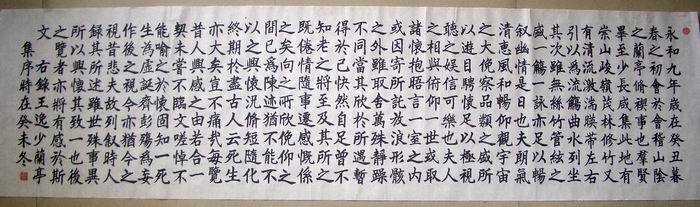 永和九年歲在癸丑暮
春之初會于會稽山陰
之蘭亭脩稧事也羣賢
畢至少長咸集此地有
崇山峻嶺茂林脩竹又
有清流激湍映帶左右
引以為流觴曲水列坐
其次雖無絲竹管絃之
盛一觴一詠亦足以暢
敘幽情是日也天朗氣
清惠風和暢仰觀宇宙
之大俯察品類之盛所
以遊目騁懷足以極視
聽之娛信可樂也夫人
之相與俯仰一世或取
諸懷抱悟言一室之內
或因寄所託放浪形骸
之外雖趣舍萬殊靜躁
不同當其欣於所遇暫
得於己快然自足曾不
知老之將至及其所之
既倦情隨事遷感慨係
之矣向之所欣俛仰之
間已為陳跡猶不能不
以之興懷況脩短隨化
終期於盡古人云死生
亦大矣豈不痛哉每覽
昔人興感之由若合一
契未嘗不臨文嗟悼不
能喻之於懷固知一死
生為虛誕齊彭殤為妄
作後之視今亦猶今之
視昔悲夫故列敘時人
錄其所述雖世殊事異
所以興懷其致一也後
之覽者亦將有感於斯
文 右錄王逸少蘭亭
集序時在癸未冬